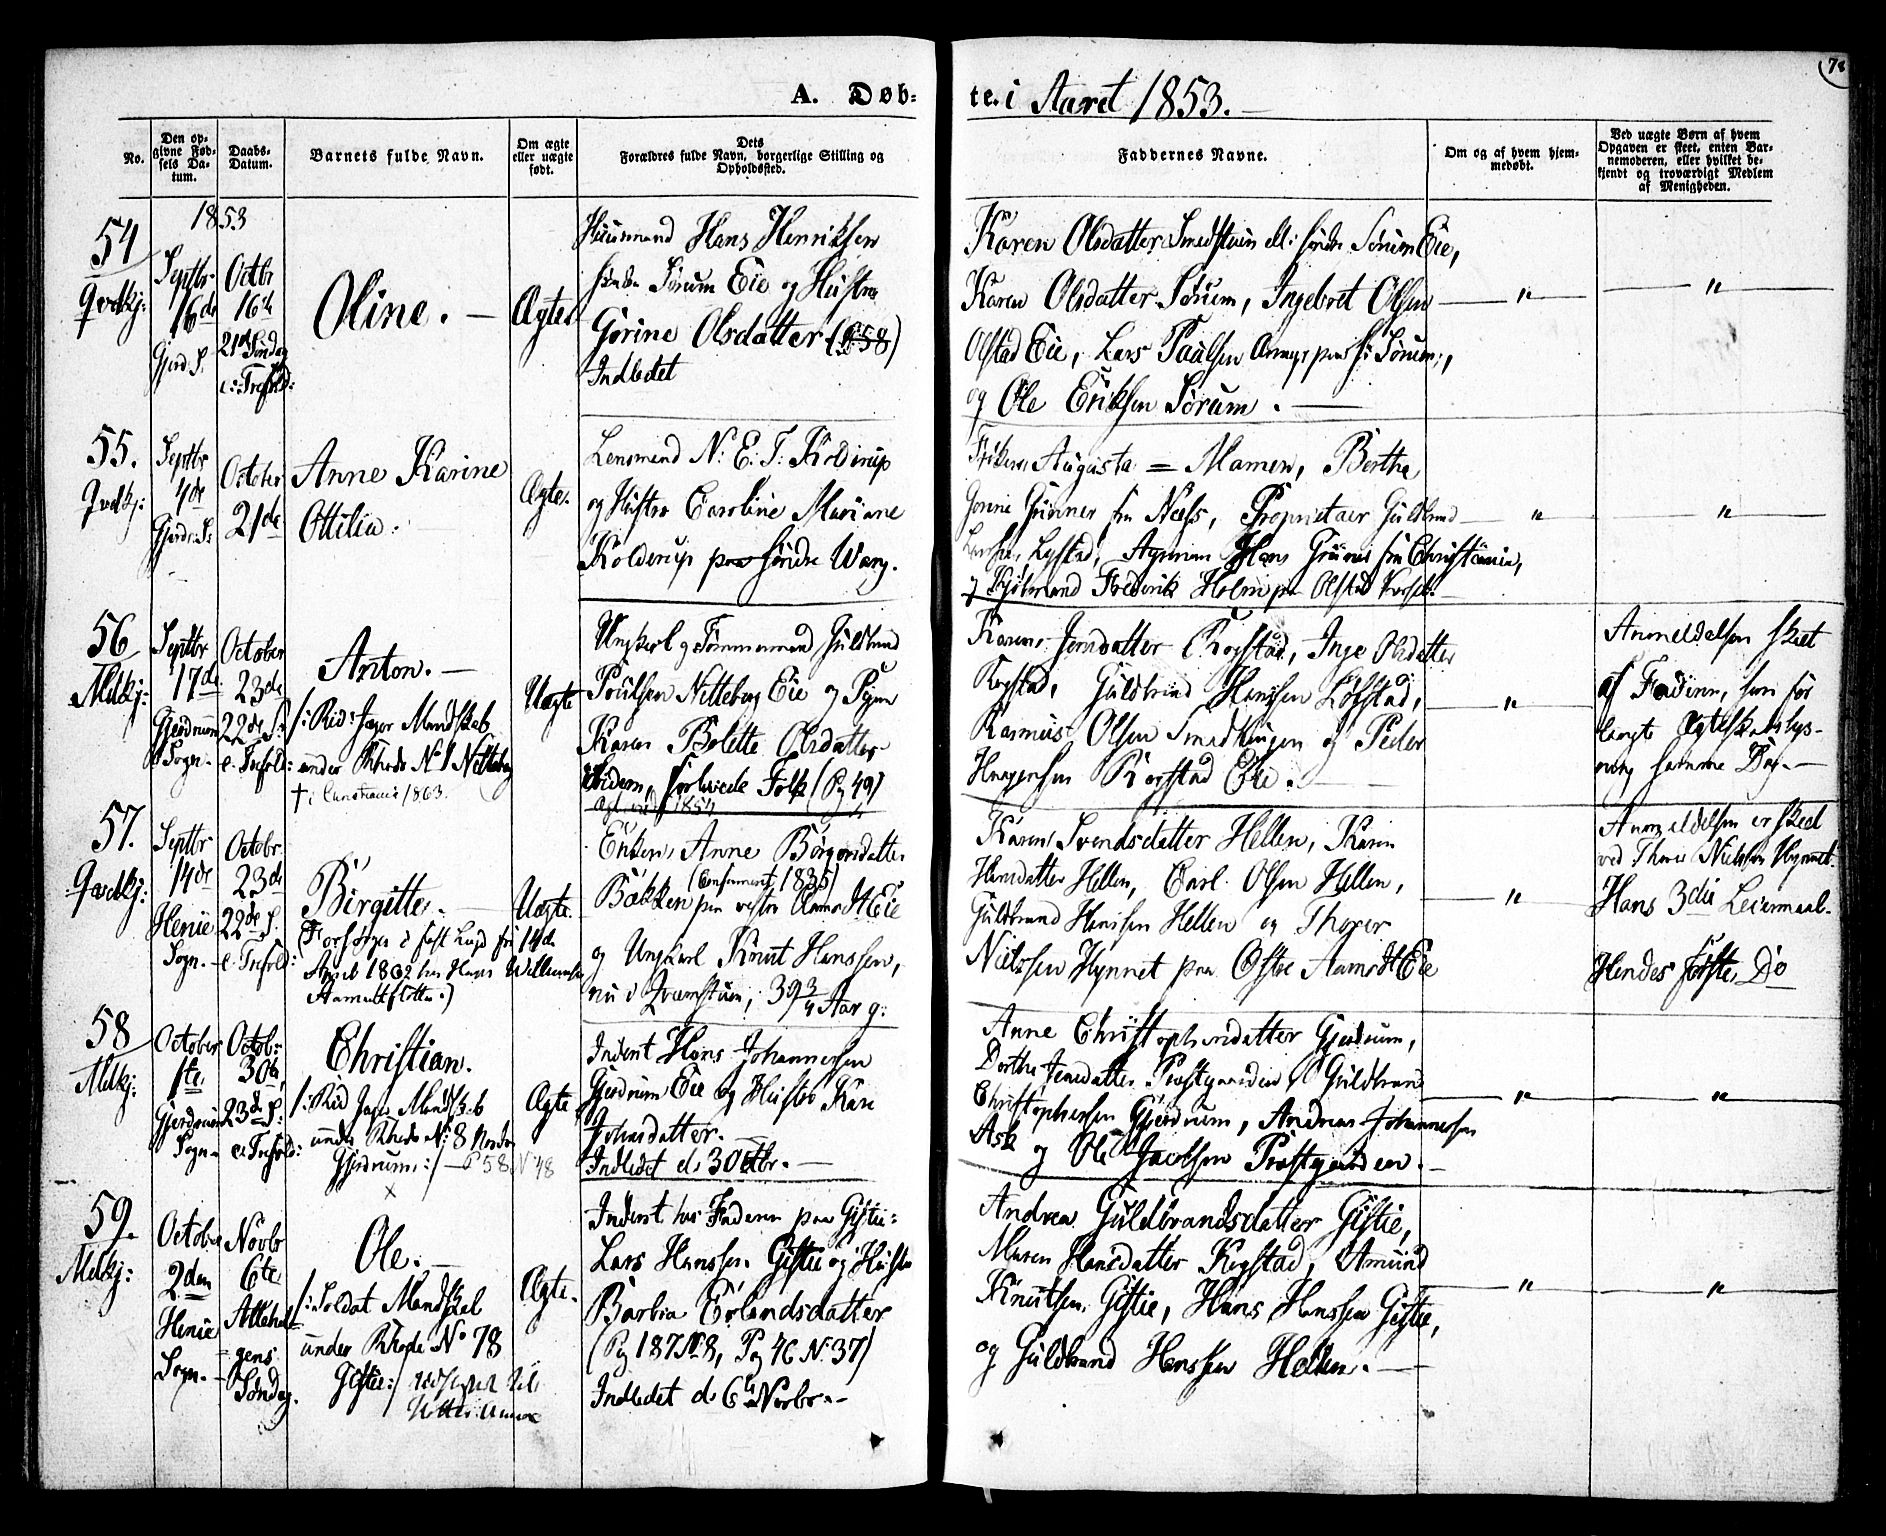 78
A. Døb-
te i Aaret 1853.
No.
Den op-
givne Fød-
sels Da-
tum.
Daabs-
Datum.
Barnets fulde Navn.
Om ægte
eller uægte
født.
Dets
Forældres fulde Navn, borgerlige Stilling og
Opholdssted.
Faddernes Navne.
Om og af hvem hjem-
medøbt.
Ved uægte Børn af hvem
Opgaven er skeet, enten Bar-
nemoderen, eller hvilket be-
kjendt og troværdigt Medlem
af Menigheden.
1853
54
Qvdkj:
Septbr
16de
Gjerd. S.
Octbr
16de
21de Søndag
e: Trefold:
Oline. —
Ægte
Huusmand Hans Henriksen
søndre Sørum Eie og Hustro
Gorine Olsdatter (P 58)
Indledet
Karen Olsdatter Smedstuen søndre Sørum Eie,
Karen Olsdatter Sørum, Ingebret Olsen
Olstad Eie, Lars Paulsen paa Sørum,
og Ole Eriksen Sørum. —
"
"
55.
Qvdkj:
Septbr
4de
Gjerdr. S.
October
21de
Anne Karine
Ottilia.
Ægte.
Lensmand N. E. T. Kolderup
og Hustro Caroline Mariane
Kolderup paa søndre Wang.
Frøken Augusta = Mamen, Berthe
Gorine Grüner fra Næss, Proprietair Guldbrand
Larsen Lystad, Hans Grüner fra Christiania,
og Frederik Holm paa Olstad
"
"
56
Mdkj:
Septbr
17de
Gjerdrum
Sogn.
October
23de
22de S.
e. Trefold:
Anton. —
/: Rid: Jæger Mandskab
under Rhode No 1 Nitteberg
† i Christiania 1863.
Uægte
Ungkarl og Tømmermand Guldbrand
Poulsen Nitteberg Eie og Pigen
Karen Bolette Olsdatter
ibidem, forlovede Folk (Pg 49)
1854
Karen Jensdatter Rogstad, Inge Olsdatter
Rogstad, Guldbrand Hansen Løfstad,
Rasmus Olsen Smedstuen og Peder
Haagensen Rogstad Eie.
"
Anmeldelsen skeet
af Faderen, som for
langte Ægteskabslys-
ning samme Dag. —
57.
Qvdkj:
Septbr
14de
Henie
Sogn. —
Octobr.
23de
22de S.
e. Trefold:
Birgitte. —
April 1862
Uægte
Enken Anne Børgersdatter
(Confirmeret 1835)
Bakken paa vestre Aamodt Eie
og Ungkarl Knut Hanssen,
nu i 39 3/4 Aar g:
Karen Svendsdatter Hellen, Karen
Hansdatter Hellen, Carl Olsen Hellen,
Guldbrand Hanssen Hellen og Thorer
Nielssen Hynnet paa Østre Aamodt Eie
"
Anmeldelsen er skeet
ved Thorer Nielssen Hynnet.
Hans 3die Leiermaal.
Hendes første Do
58
Mdkj:
October
1ste
Gjerdrum
Sogn
Octob:
30te
23de S.
e. Trefold:
Christian.
/: Rid Jæger Mandskab
under Rhode No: 8 Nordre
Gjerdrum :/ — P 58 N 48
x
Ægte
Inderst Hans Johannessen
Gjerdrum Eie og Hustro Kari
Johnsdatter.
Indledet d. 30 Octbr. —
Anne Christophersdatter Gjerdrum,
Dorthe Jensdatter Præstgaarden, Guldbrand
Christophersen Gjerdrum, Andreas Johannessen
Ask og Ole Jacobsen Præstgaarden. —
"
"
59.
Mdkj:
October
2den
Henie
Sogn. —
Novbr
6te
Allehel-
gens
Søndag.
Ole. —
/: Soldat Mandskab
under Rhode No 78
Gistie :/
Ægte.
Inderst hos Faderen paa Gistie:
Lars Hanssen Gistie og Hustro
Barbra Erlandsdatter
(Pg 187 N 8, Pg 46 N. 37)
Indledet d. 6te Novbr. —
Andrea Guldbrandsdatter Gistie,
Maren Hansdatter Rogstad, Amund
Knutsen Gistie, Hans Hanssen Gistie,
og Guldbrand Hanssen Hellen. —
"
"